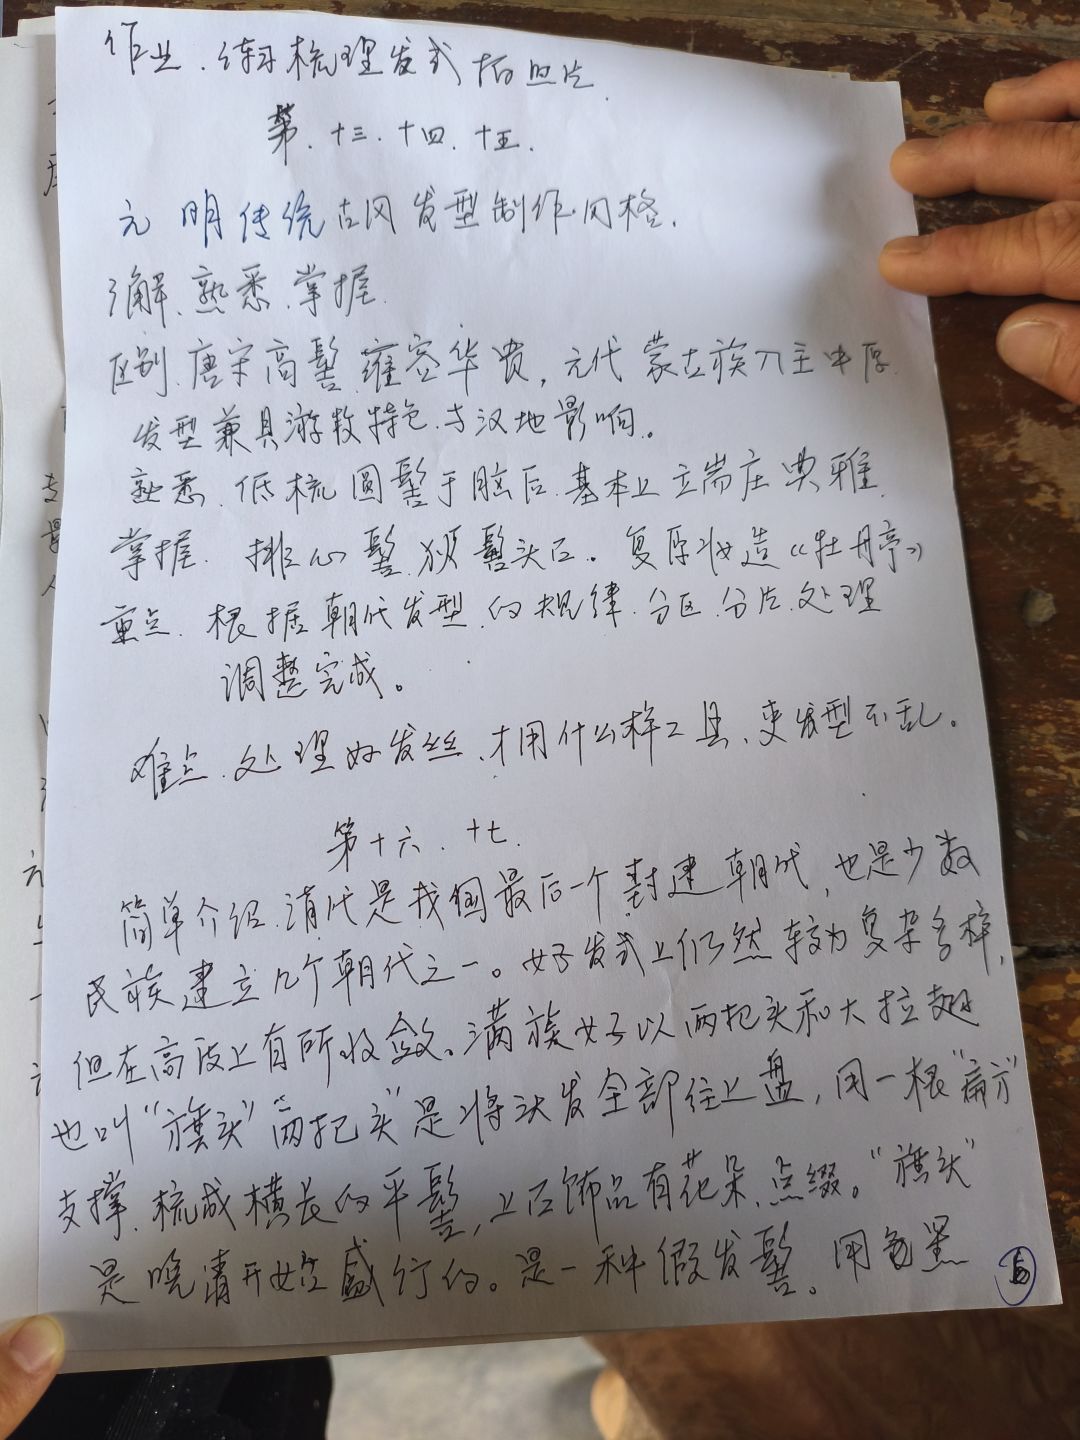 作业、练习梳理发式拍照片.
第、十三、十四、十五.
元 明传统古风发型制作风格.
了解、熟悉、掌握.
区别、唐宋高髻雍容华贵,元代蒙古族入主中原.
发型兼具游牧特色、与汉地影响。
熟悉、低梳圆髻于脑后、基本上立端庄典雅.
掌握、挑心髻、狄髻头面。复原妆造《牡丹亭》
重点、根据朝代发型、的规律、分区、分片、处理
调整完成。
难点、处理好发丝、才用什么样工具、使发型不乱。
第十六、十七.
简单介绍、清代是我国最后一个封建朝代,也是少数
民族建立几个朝代之一。女子发式上仍然较为复杂多样,
但在高度上有所收敛。满族女子以两把头和大拉翅
也叫"旗头"两把头"是将头发全部往上盘,用一根"扁方"
支撑、梳成横长的平髻,上面饰品有花朵、点缀。"旗头"
是晚清开始盛行的。是一种假发髻。用